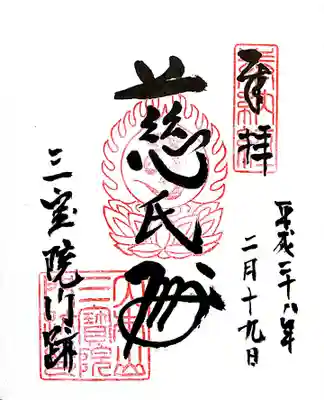 奉拝
平成二十八年
二月十九日
慈氏殿
三宝院門跡
三寳院